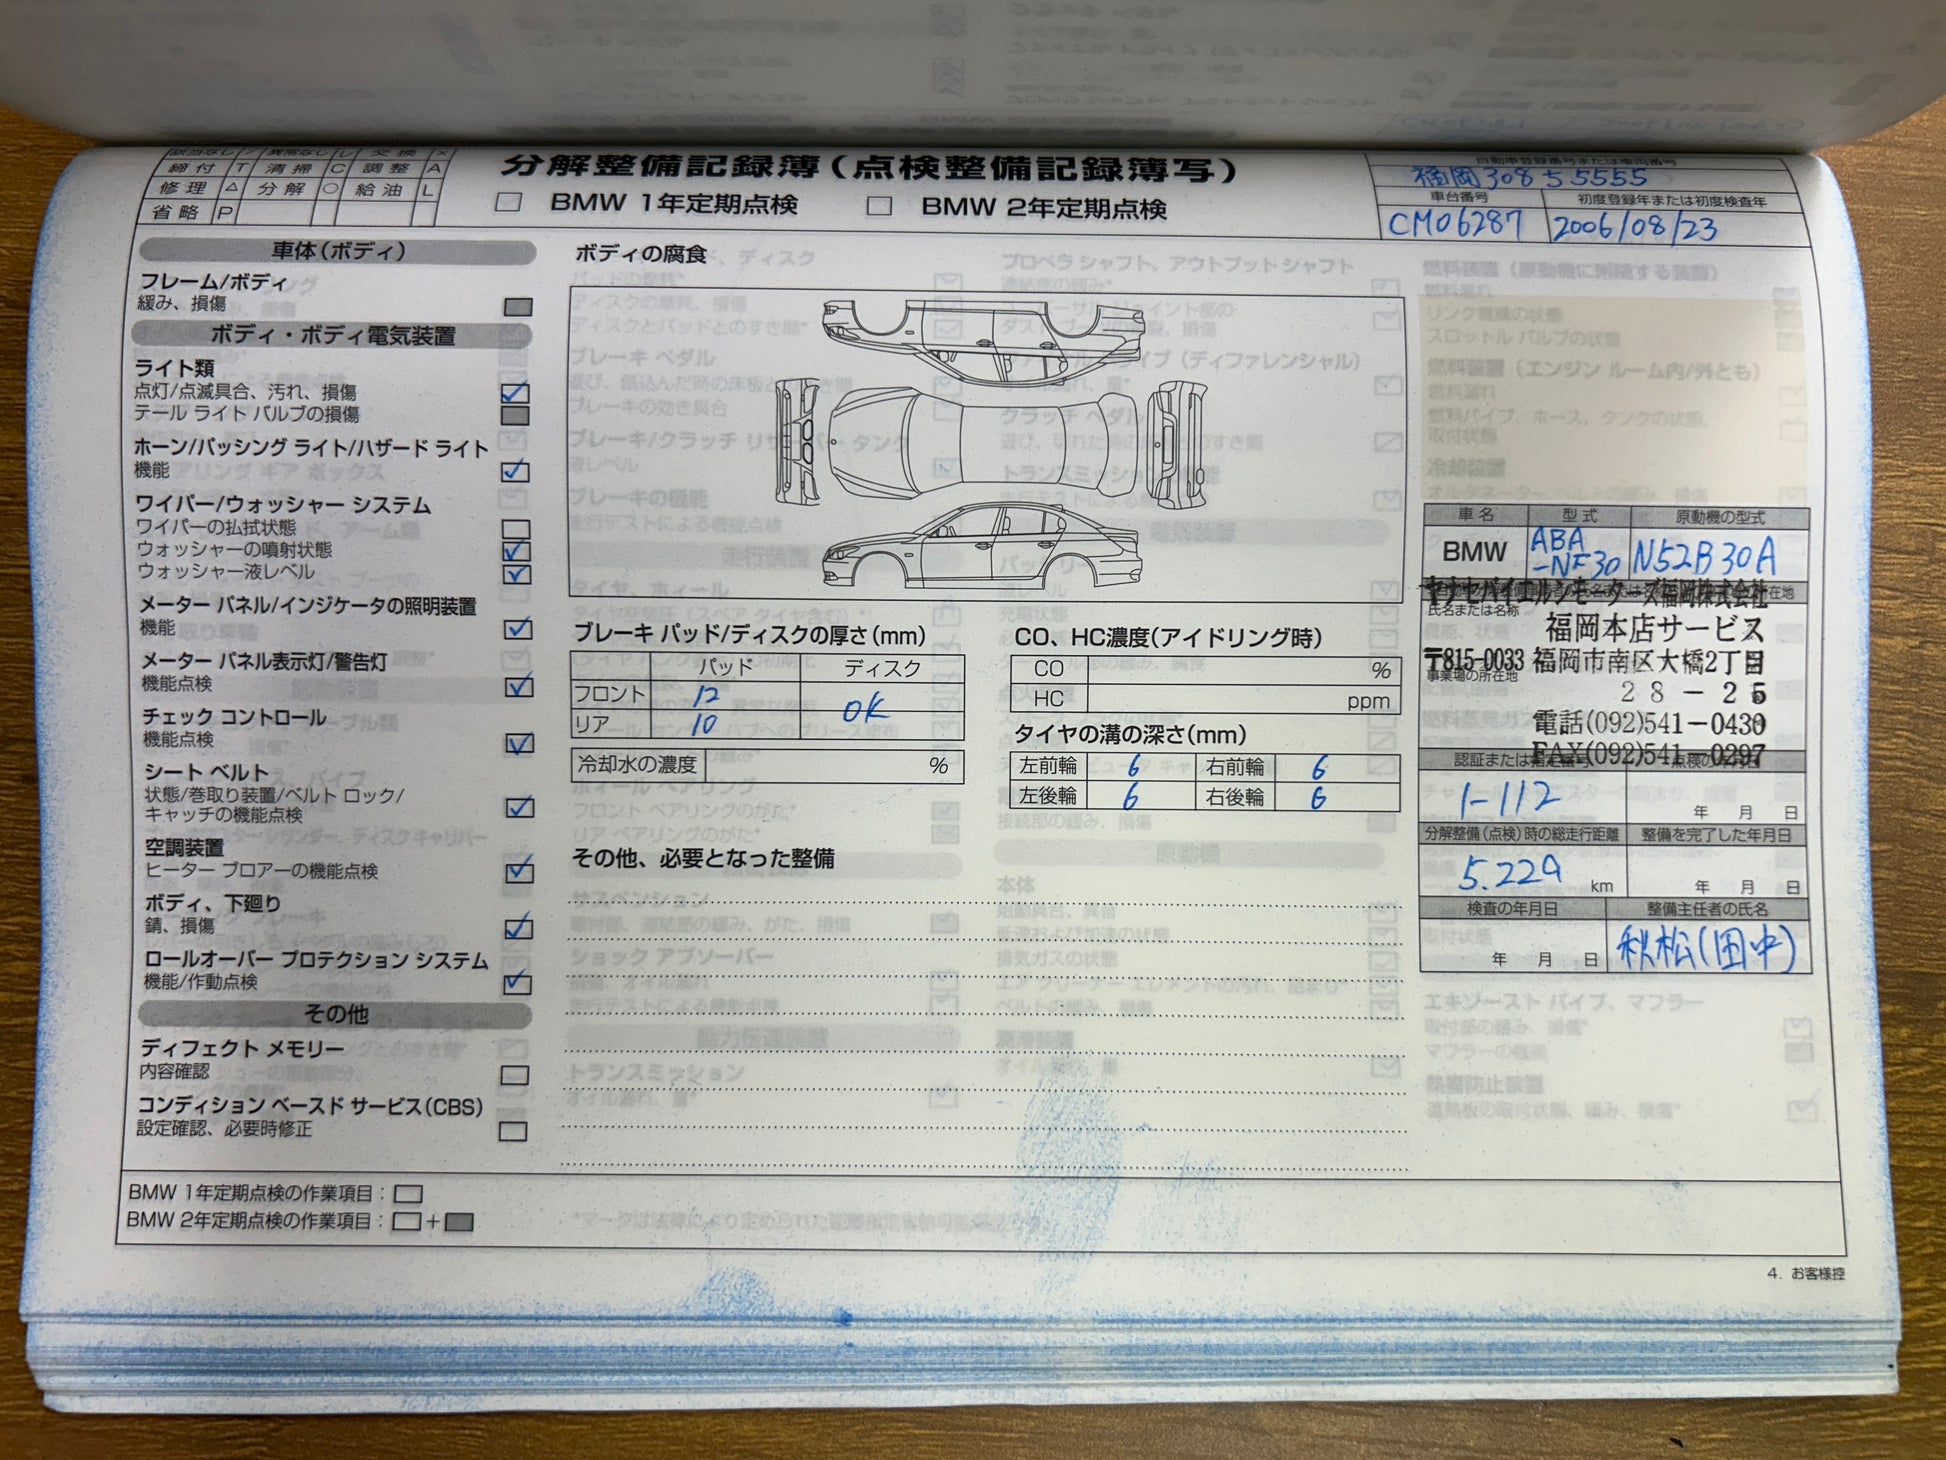 締付 T 清掃 C 調整 A
修理 △ 分解 ○ 給油 L
省略 P
分解整備記録簿(点検整備記録簿写)
BMW 1年定期点検
BMW 2年定期点検
自動車登録番号または車両番号
福岡 308 ら 5555
車台番号
初度登録年または初度検査年
CM06287
2006/08/23
車体(ボディ)
フレーム/ボディ
緩み、損傷
ボディ・ボディ電気装置
ライト類
点灯/点滅具合、汚れ、損傷
テール ライト バルブの損傷
ホーン/パッシング ライト/ハザード ライト
機能
ワイパー/ウォッシャー システム
ワイパーの払拭状態
ウォッシャーの噴射状態
ウォッシャー液レベル
メーター パネル/インジケータの照明装置
機能
メーター パネル表示灯/警告灯
機能点検
チェック コントロール
機能点検
シート ベルト
状態/巻取り装置/ベルト ロック/
キャッチの機能点検
空調装置
ヒーター ブロアーの機能点検
ボディ、下廻り
錆、損傷
ロールオーバー プロテクション システム
機能/作動点検
その他
ディフェクト メモリー
内容確認
コンディション ベースド サービス(CBS)
設定確認、必要時修正
ボディの腐食
ブレーキ パッド/ディスクの厚さ(mm)
パッド ディスク
フロント 12
OK
リア 10
冷却水の濃度 %
CO、HC濃度(アイドリング時)
CO %
HC ppm
タイヤの溝の深さ(mm)
左前輪 6 右前輪 6
左後輪 6 右後輪 6
その他、必要となった整備
車名 型式 原動機の型式
BMW ABA-NF30 N52B30A
氏名または名称
福岡本店サービス
〒815-0033 福岡市南区大橋2丁目
事業場の所在地
28-25
電話(092)541-0430
FAX(092)541-0297
1-112
年 月 日
分解整備(点検)時の総走行距離 整備を完了した年月日
5.229 km
年 月 日
検査の年月日 整備主任者の氏名
年 月 日
秋松(田中)
BMW 1年定期点検の作業項目:
BMW 2年定期点検の作業項目: +
4. お客様控